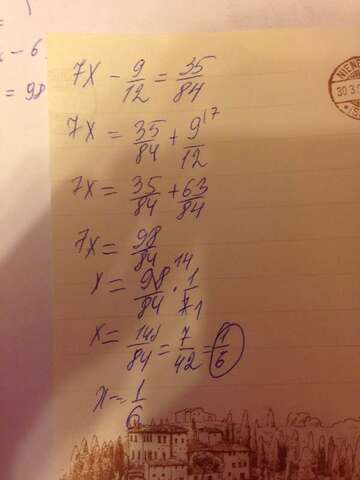 - 6
= 98
7x - 9/12 = 35/84
7x = 35/84 + 9^17/12
7x = 35/84 + 63/84
7x = 98/84
x = 98^14/84 · 1/7 1
x = 14/84 = 7/42 = 1/6
x = 1/6
30.3